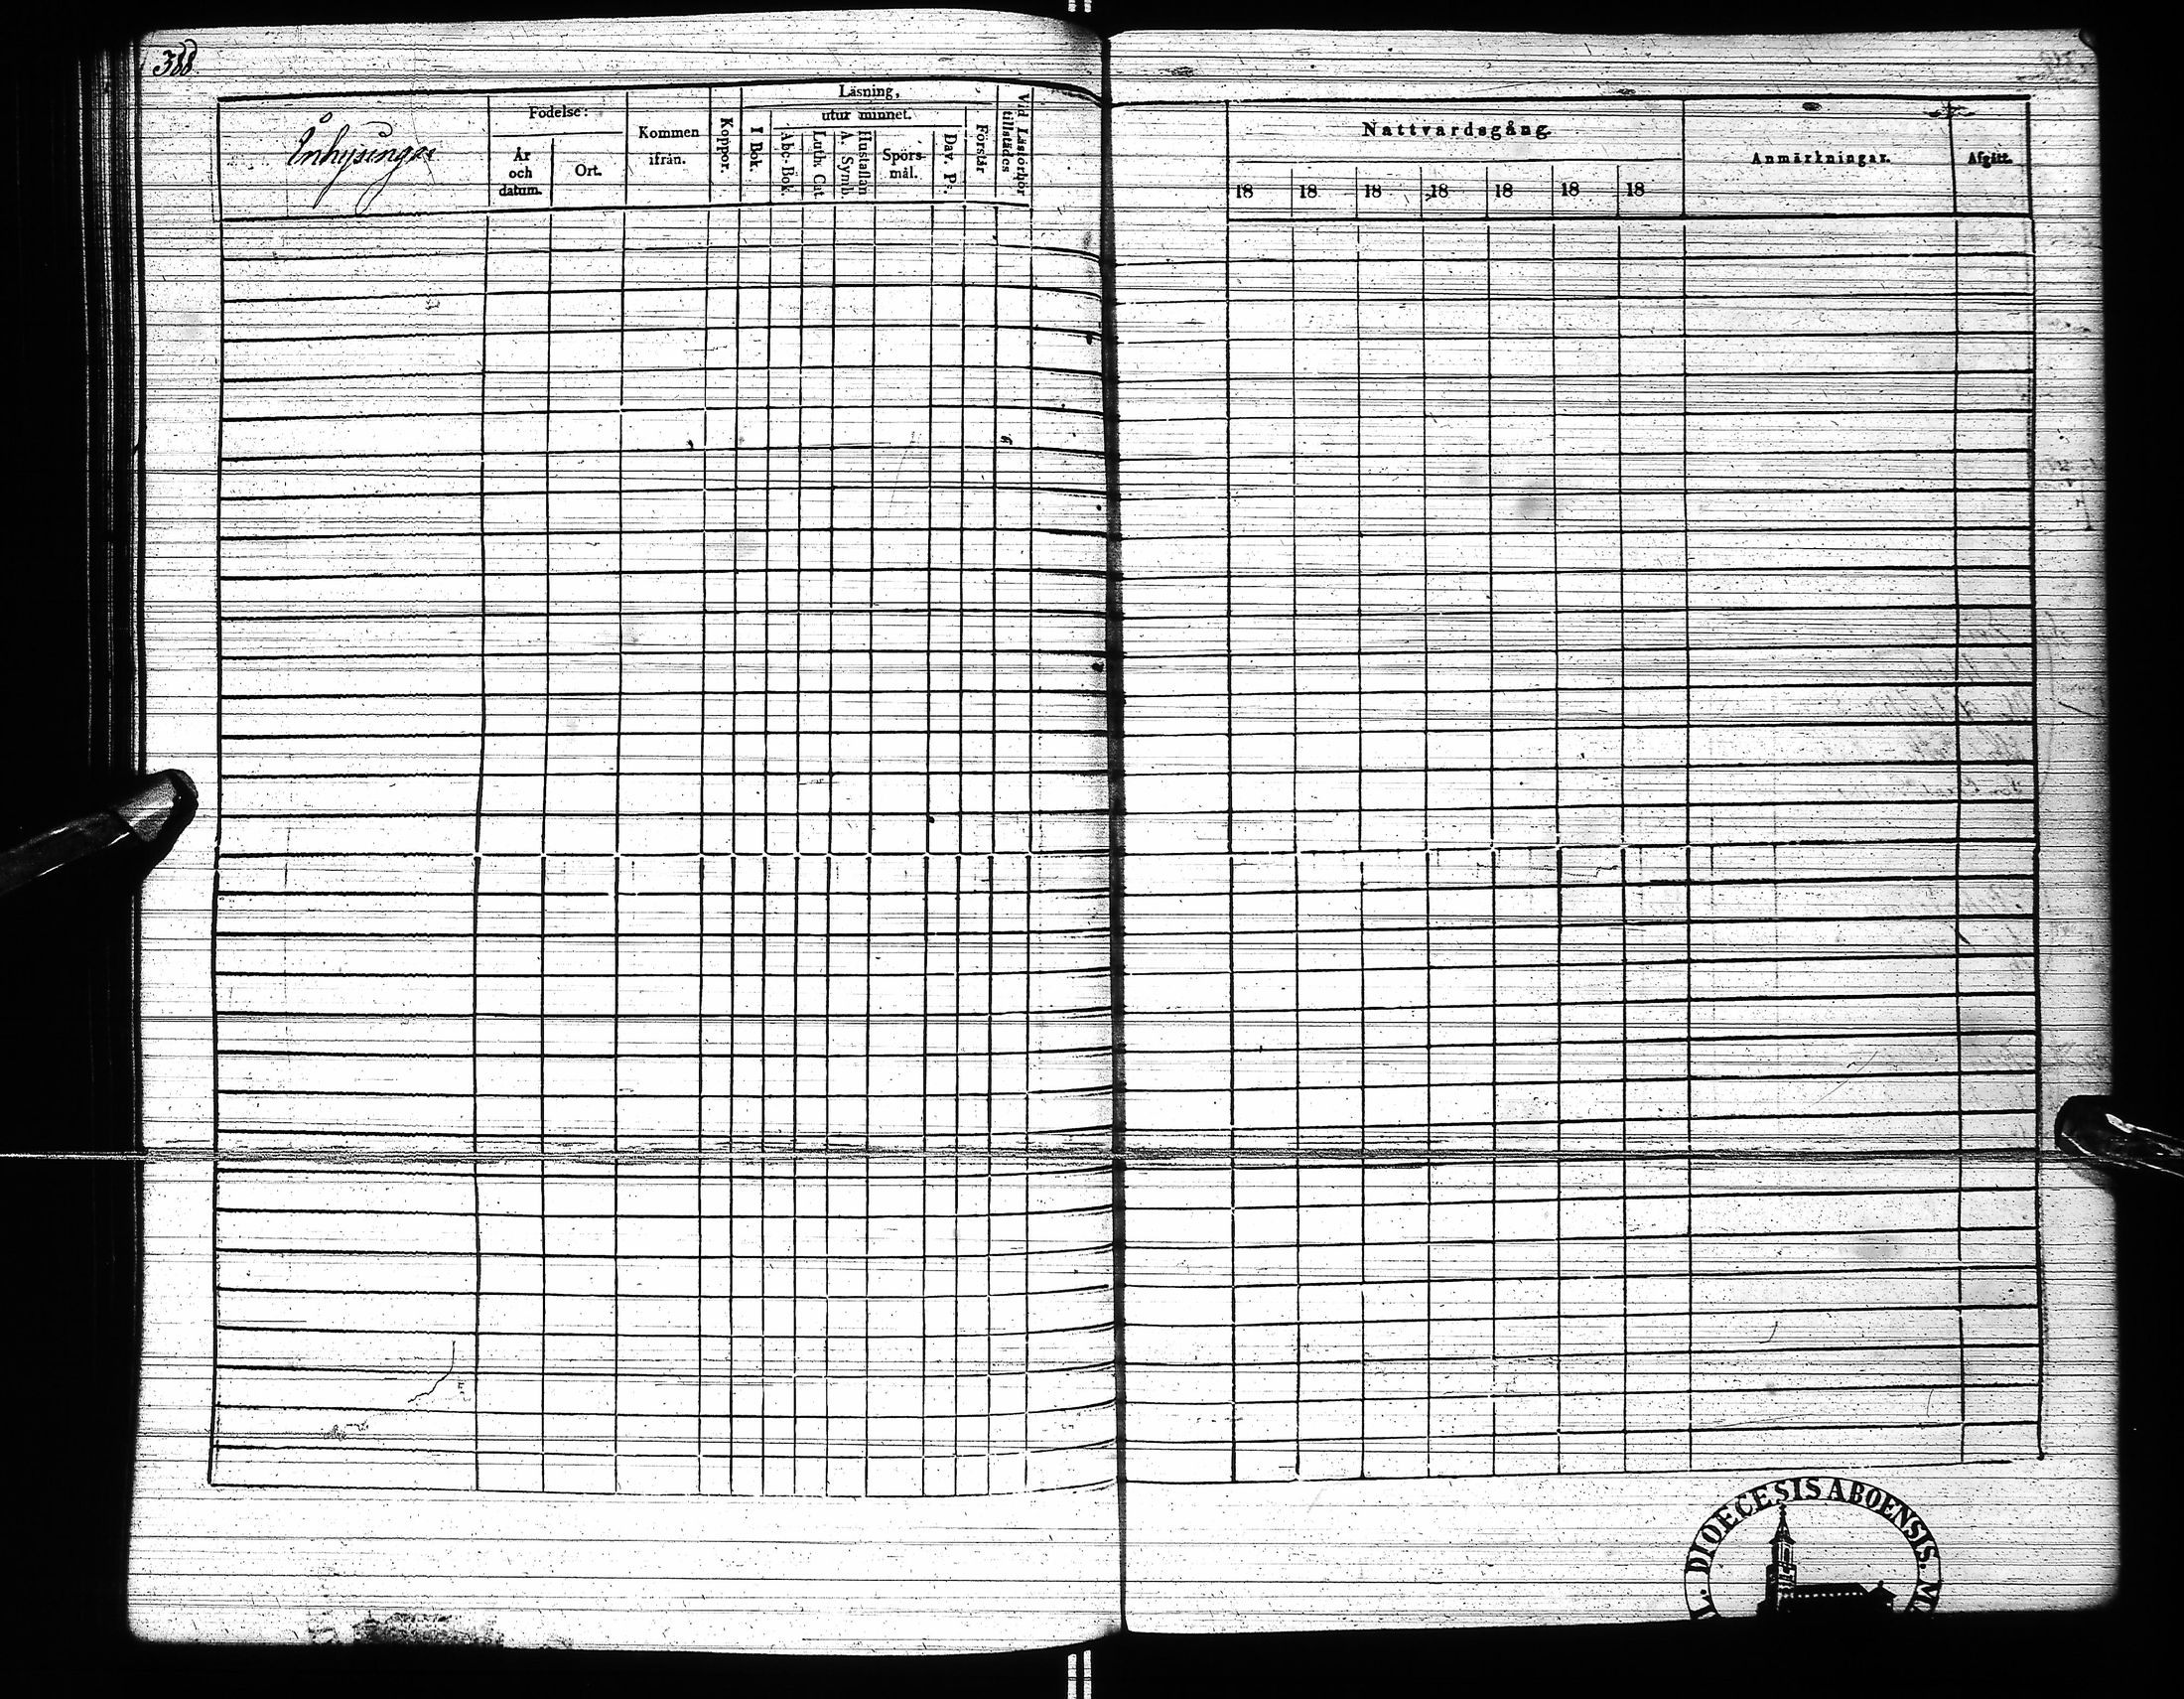 388
Inhysingar
Födelse:
År
och
datum.
Ort.
Kommen
ifrån.
Koppor.
Läsning,
I Bok.
utur minnet.
Abc-Bok.
Luth. Cat.
A. Symb.
Hustaflan
Spörs-
mål.
Dav. Ps.
Förstår
Vid Läsförhör
tillstädes
Nattvardsgång.
18 18 18 18 18 18 18
Anmärkningar.
Afgått.
DIOECESIS ABOENSIS.